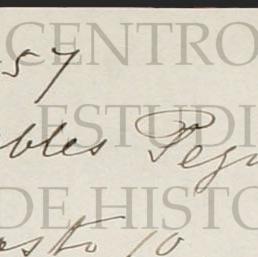 CENTRO
57
ESTUDI
bles Pegu
DE HISTO
sto 10